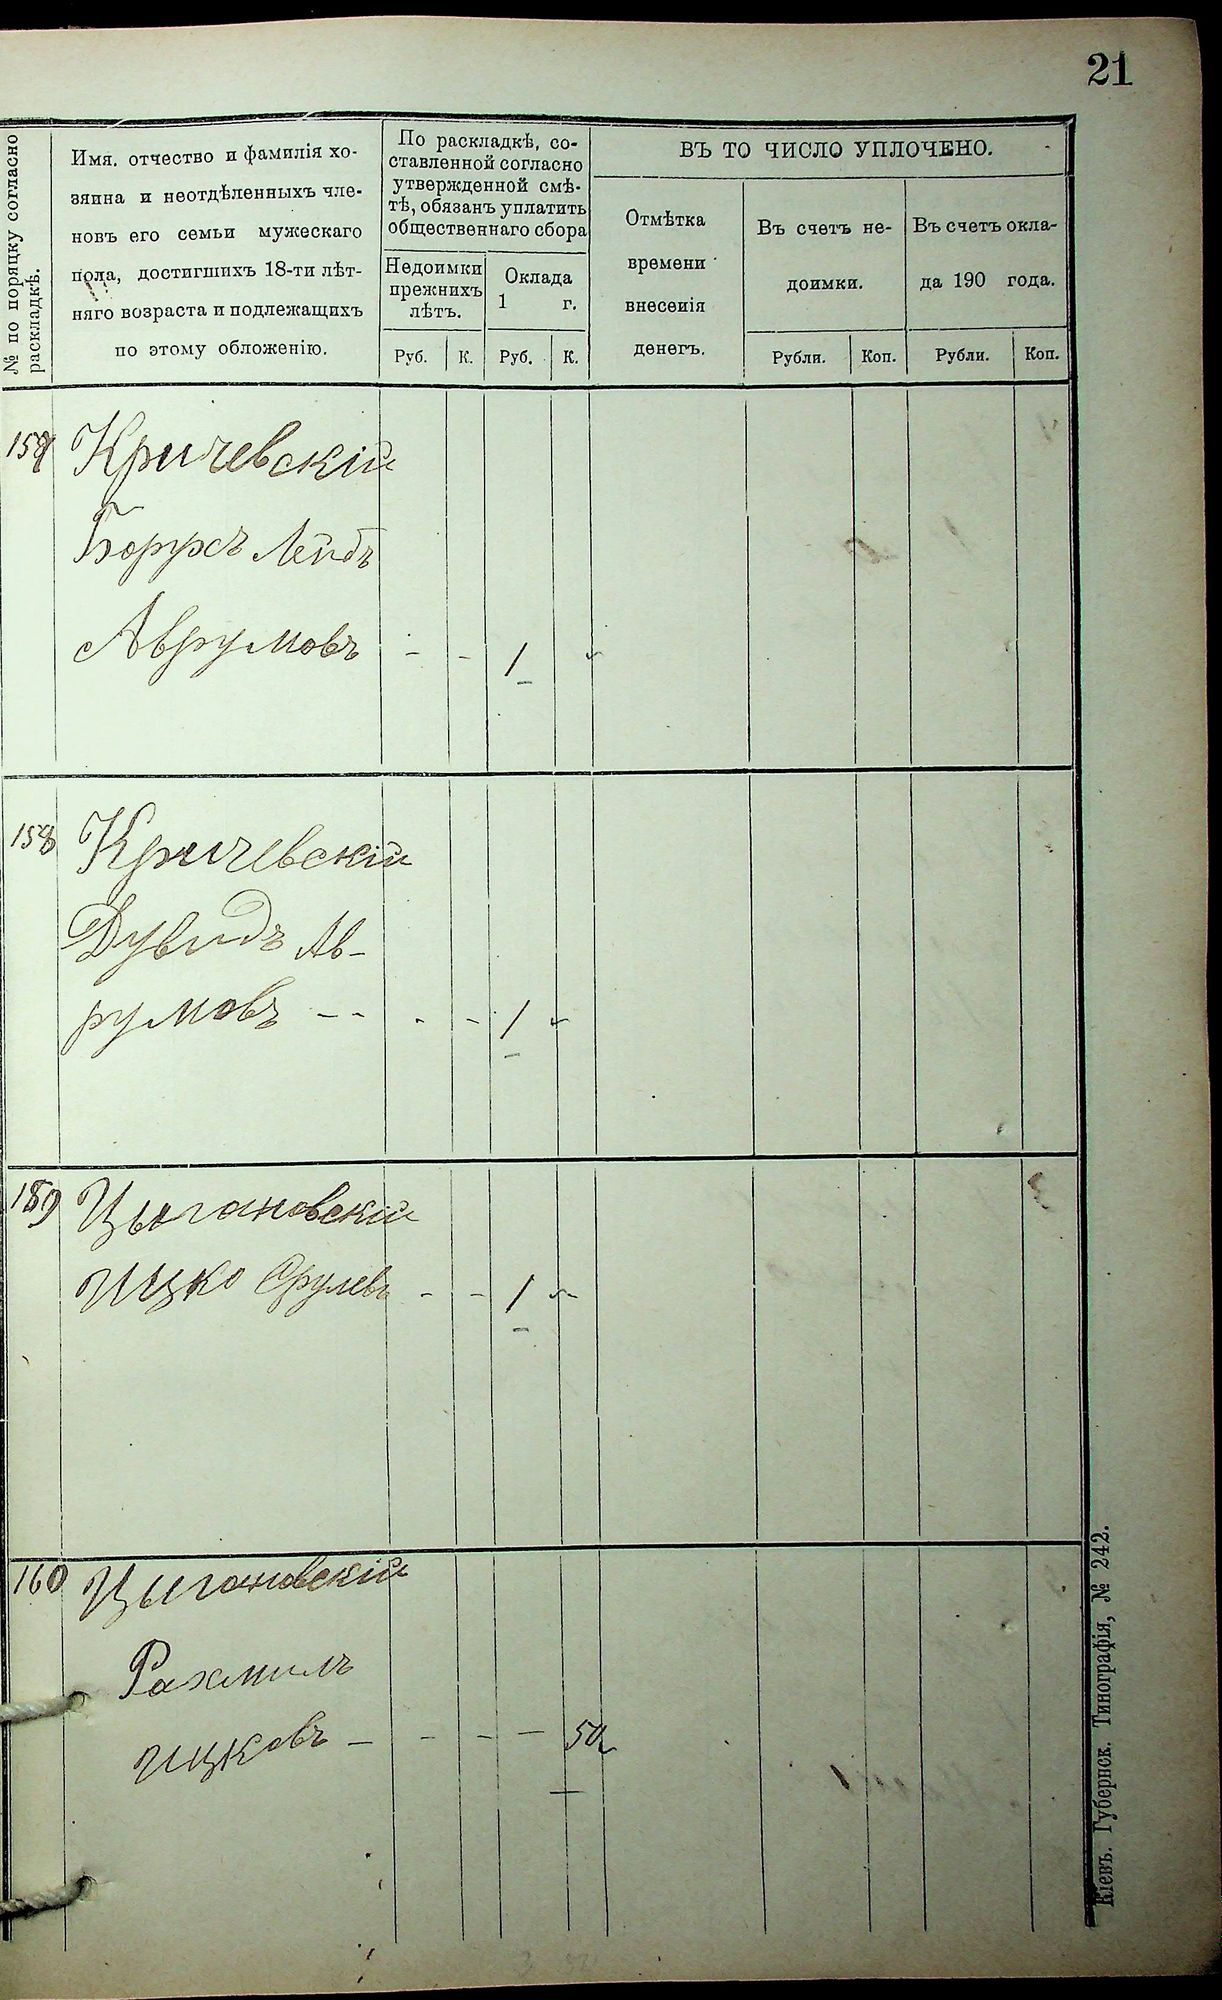 21
№ по поряцку согласно
раскладкѣ.
Имя, отчество и фамилія хо-
зяина и неотдѣленныхъ чле-
новъ его семьи мужескаго
пола, достигшихъ 18-ти лѣт-
няго возраста и подлежащихъ
по этому обложенію.
По раскладкѣ, со-
ставленной согласно
утвержденной смѣ-
тѣ, обязанъ уплатить
общественнаго сбора
Недоимки
прежнихъ
лѣтъ.
Оклада
1 г.
Руб. К. Руб. К.
ВЪ ТО ЧИСЛО УПЛОЧЕНО.
Отмѣтка
времени
внесеиія
денегъ.
Въ счетъ не-
доимки.
Въ счетъ окла-
да 190 года.
Рубли. Коп. Рубли. Коп.
Кричевскій
Борухъ Лейбъ
Аврумовъ - - 1
158 Кричевскій
Дувидъ Ав-
румовъ -- - - 1
159 Цыгановскій
Ицко Срулевъ - - 1
160 Цыгановскій
Рахмиль
Ицковъ - - - - 50
Кіевъ. Губернск. Тинографія, № 242.